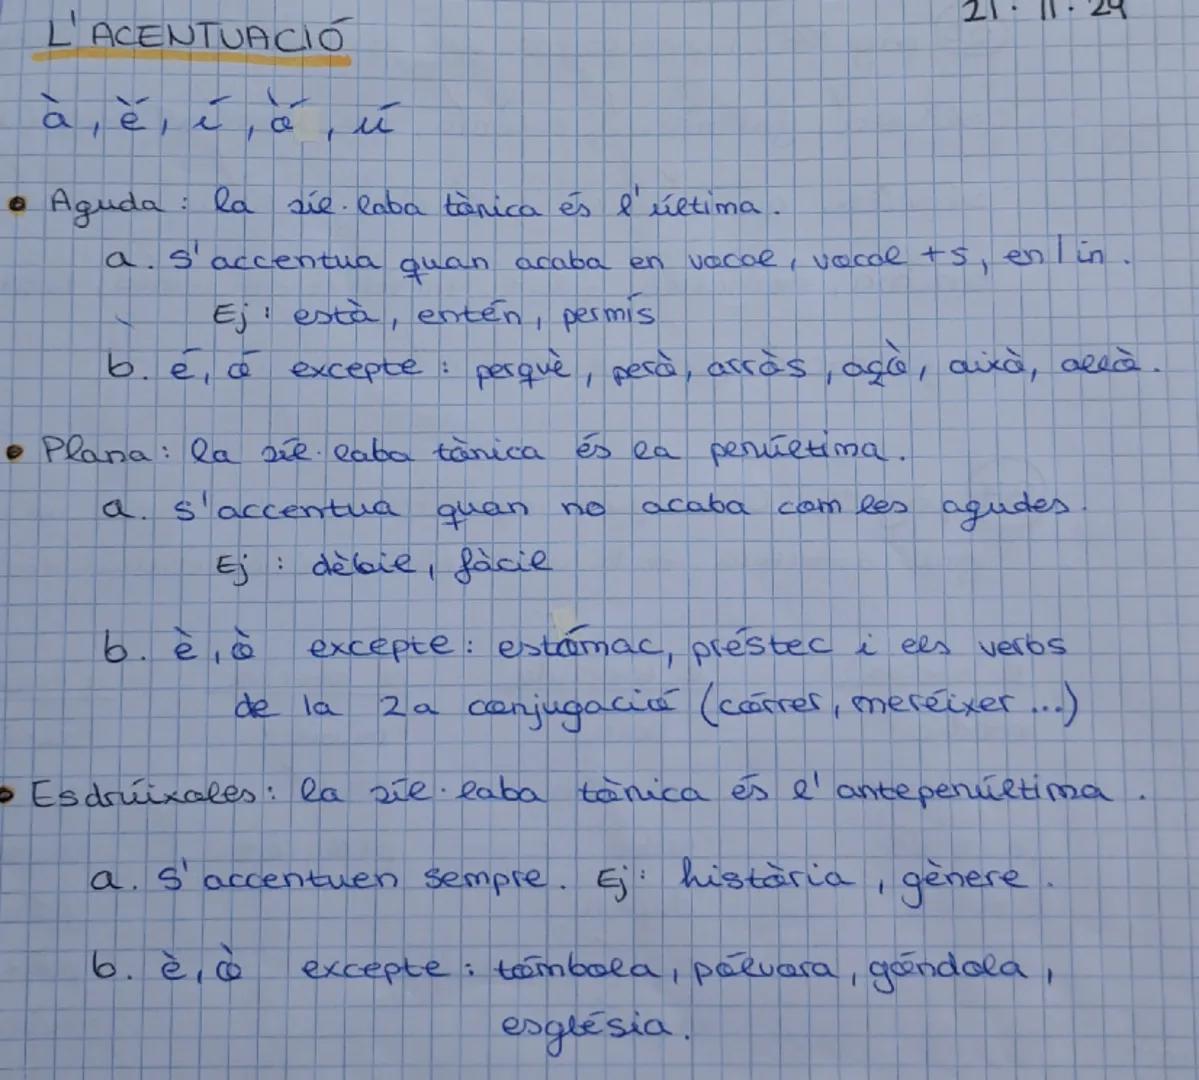 21.11.24
L'ACENTUACIÓ
à, è́, í, ò́, ú
Aguda: la síl·laba tònica és l'última.
a. s'accentua quan acaba en vocal, vocal +s, en/in.
Ej: està, entén, permís
b. é, ó excepte: perquè, però, arròs, açò, això, allò.
Plana: la síl·laba tònica és la penúltima.
a. s'accentua quan no acaba com les agudes.
Ej: dèbil, fàcil
b. è, ò excepte: estómac, préstec i els verbs
de la 2a conjugació (córrer, meréixer...)
Esdrúixoles: la síl·laba tònica és l'antepenúltima.
a. s'accentuen sempre. Ej: història, gènere.
b. è, ò excepte: tómbola, pólvora, góndola,
església.